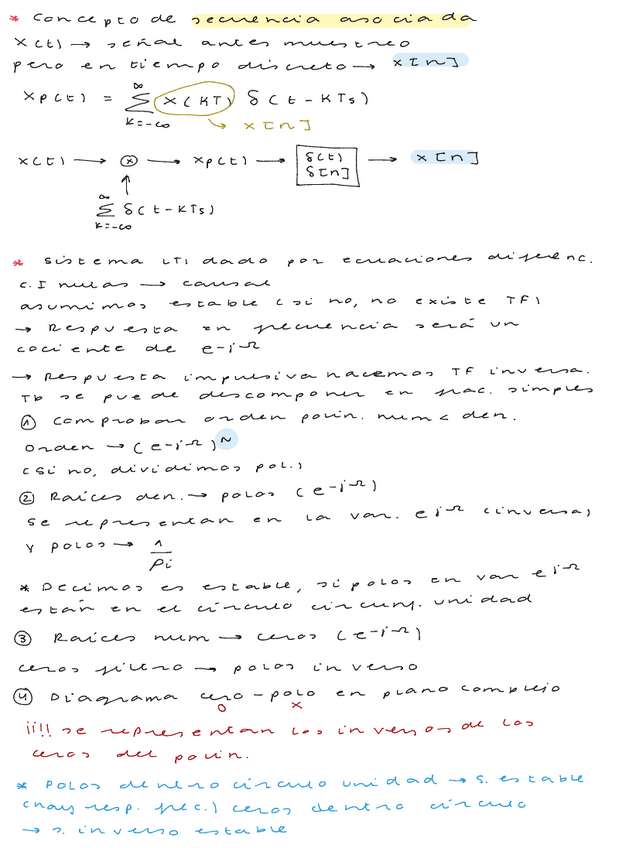 * Concepto de secuencia asociada
x(t) → señal antes muestreo
pero en tiempo discreto → x[n]
xp(t) = ∑ x(KT) δ(t-KTs)
∞
K=-∞
↳ x[n]
x(t) → ⊗ → xp(t) → δ(t) δ[n] → x[n]
↑
∞
∑ δ(t-KTs)
K=-∞
* Sistema LTI dado por ecuaciones diferenc.
C.I nulas → causal
asumimos estable (si no, no existe TF)
→ Respuesta en frecuencia será un
cociente de e-jΩ
→ Respuesta impulsiva hacemos TF inversa.
Tb se puede descomponer en frac. simples
① Comprobar orden polin. num < den.
orden → (e-jΩ)N
(si no, dividimos pol.)
② Raíces den. → polos (e-jΩ)
se representan en la var. ejΩ (inversa)
y polos → 1/Pi
* Decimos es estable, si polos en var ejΩ
están en el círculo circunf. unidad
③ Raíces num → ceros (e-jΩ)
ceros filtro → polos inverso
④ Diagrama cero-polo en plano complejo
O X
¡¡!! se representan los inversos de los
ceros del polin.
* Polos dentro círculo unidad → s. estable
(hay resp. frec.) ceros dentro círculo
→ s. inverso estable